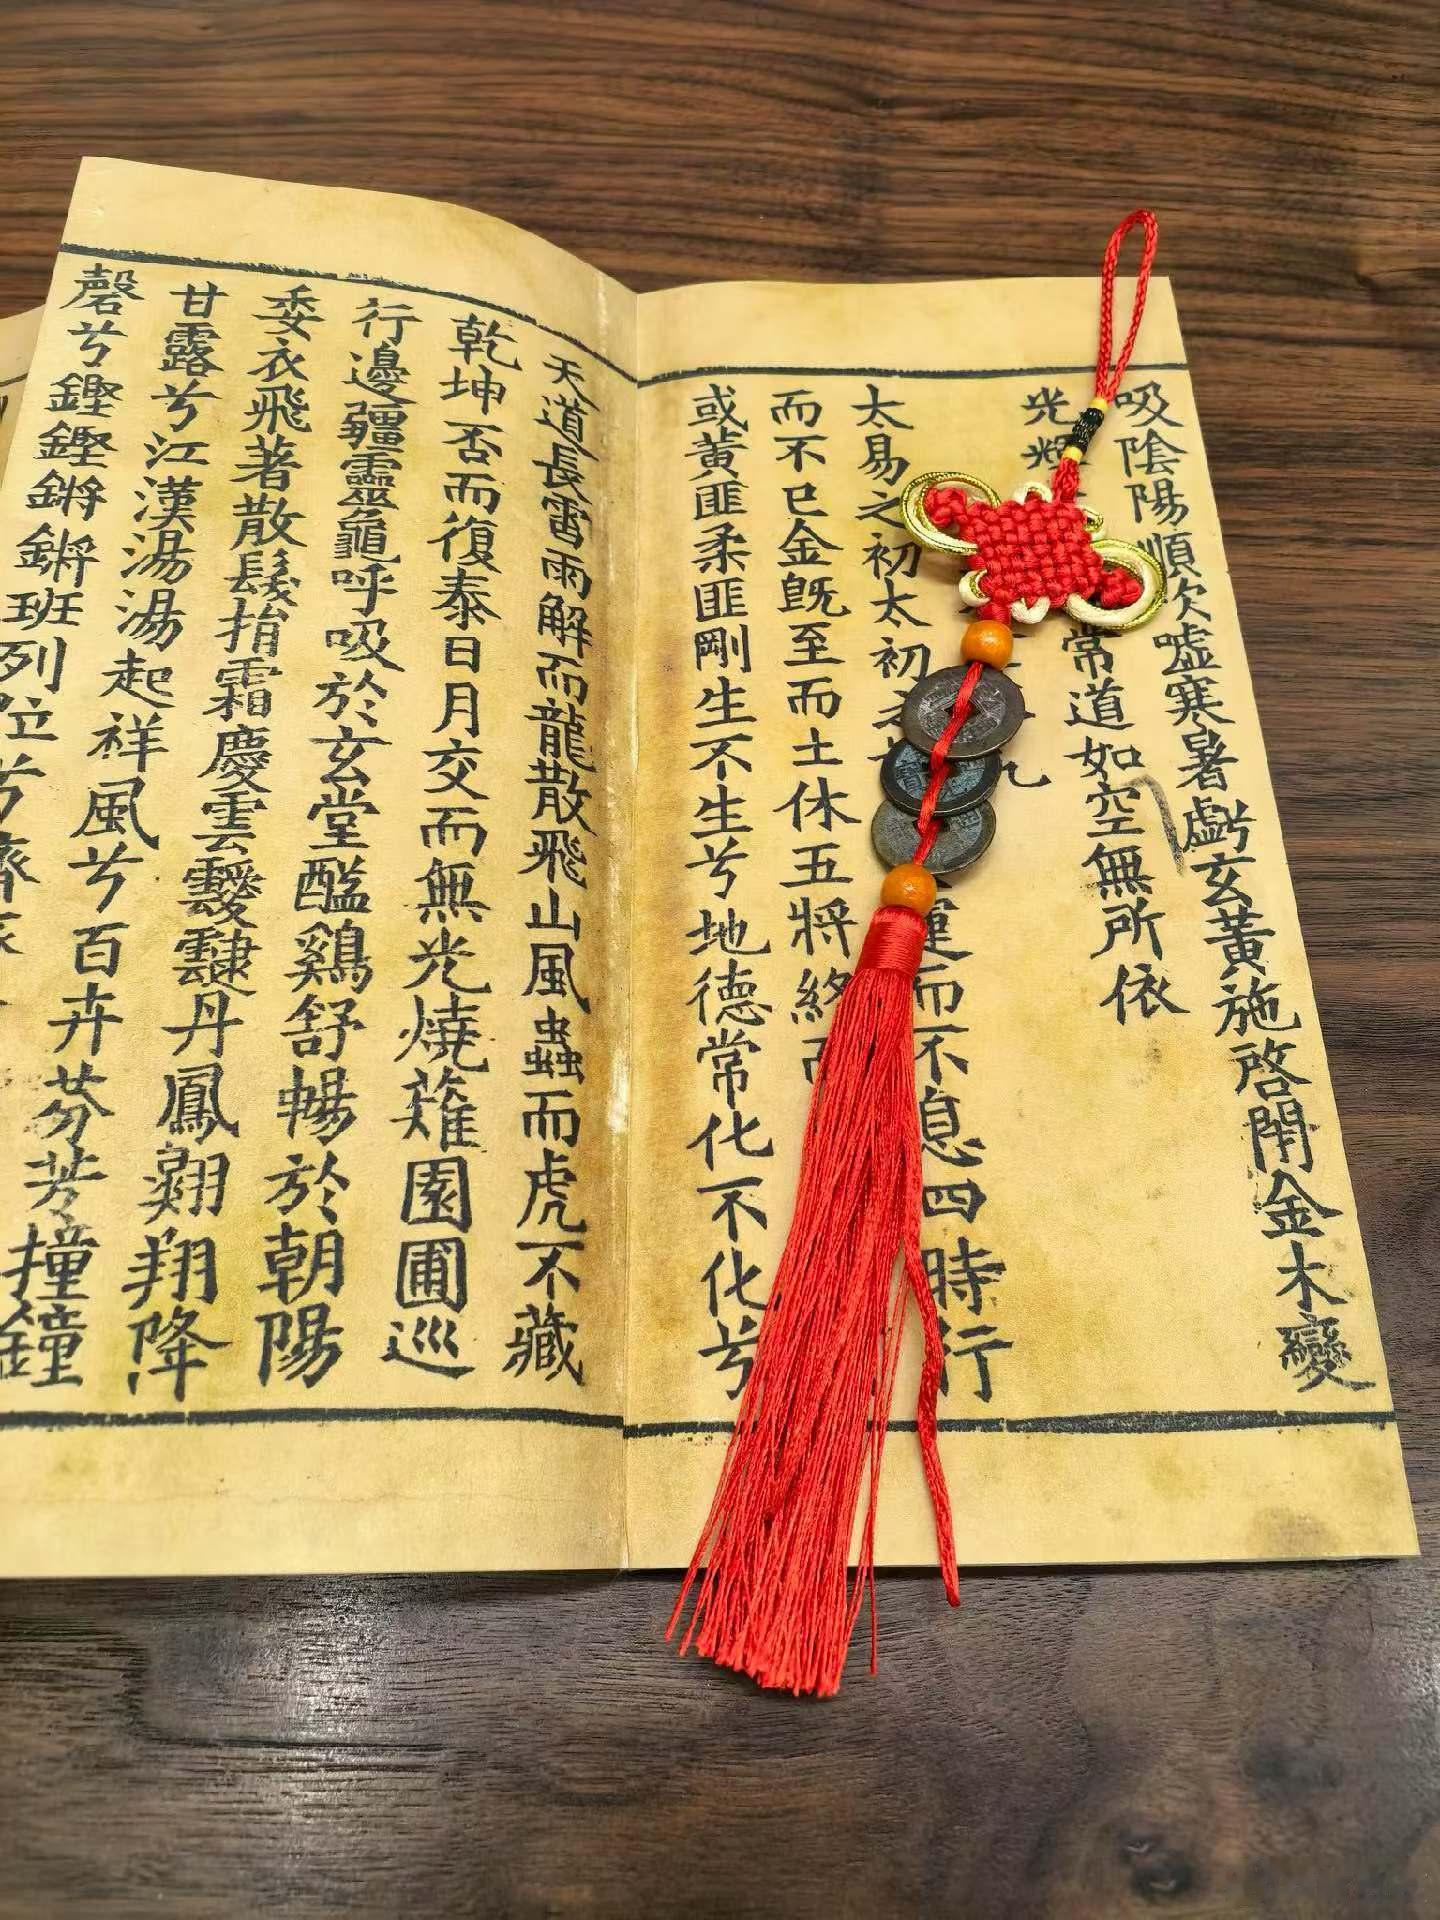 吸陰陽順次嘘寒暑虧玄黃施啓閉金木變
光輝
常道如空無所依
太易之初太初
運而不息四時行
而不已金旣至而土休五將終而
或黄匪柔匪剛生不生兮地德常化不化兮
天道長雷雨解而龍散飛山風蟲而虎不藏
乾坤否而復泰日月交而無光燒薙園圃巡
行邊疆靈龜呼吸於玄堂醯鷄舒暢於朝陽
委衣飛著散髮揹霜慶雲靉靆丹鳳翺翔降
甘露兮江漢湯湯起祥風兮百卉芬芳撞鐘
磬兮鏗鏗鏘鏘班列位兮